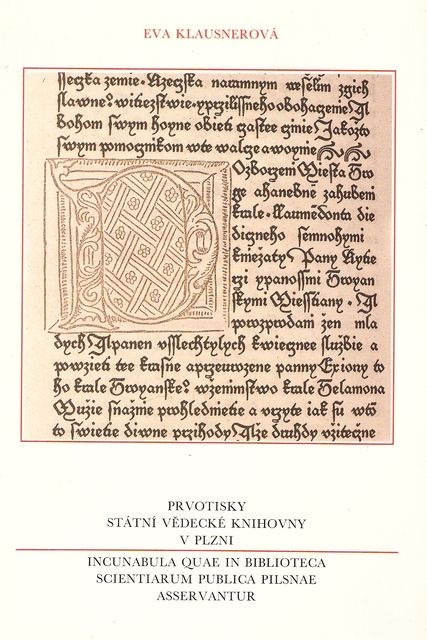 EVA KLAUSNEROVÁ
sseczka zemie. Rzeczska naramnym weselim zgich
slawne? witiezstwie. ypzilissneho obohaczenie A
bohom swym hoyne obieti czastee ginie Jakozto
swym pomocznikom wte walcze a woynie
Ozborzeni Miesta Tro
ge ahanebne zahubeni
krale. Laumedonta die
diczneho semnohymi
kniezaty Pany Rytie
rzi ypanossmi Troyan
skymi Miesstiany. A
powzprodani zen mla
dych A panen vsslechtylych kwiecznee sluzbie a
powzieti tee krasne apzeurozene panny Exiony to
ho krale Troyanske? wzenimstwo krale Thelamona
Muzie snazme prohlednutie a vrzyte iak su wto
to swietie diwne przihody Alze druhdy vzitecne
PRVOTISKY
STÁTNÍ VĚDECKÉ KNIHOVNY
V PLZNI
INCUNABULA QUAE IN BIBLIOTECA
SCIENTIARUM PUBLICA PILSNAE
ASSERVANTUR